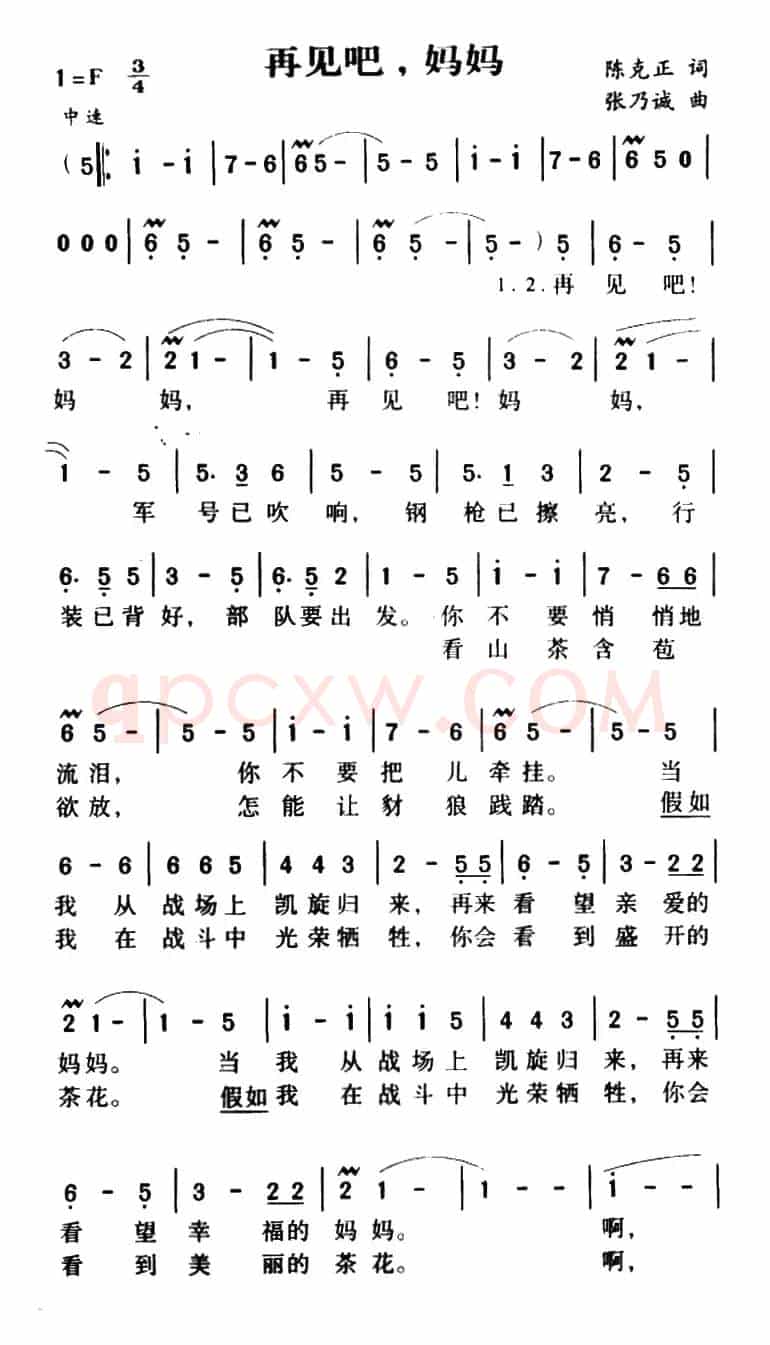 再见吧，妈妈
1=F 3/4
陈克正 词
中速
张乃诚 曲
(5 |: i - i | 7 - 6 | 6 5 - | 5 - 5 | i - i | 7 - 6 | 6 5 0 |
0 0 0 | 6 5 - | 6 5 - | 6 5 - | 5 - ) 5 | 6 - 5 |
1.2.再 见 吧！
3 - 2 | 2 1 - | 1 - 5 | 6 - 5 | 3 - 2 | 2 1 - |
妈 妈， 再 见 吧！妈 妈，
1 - 5 | 5. 3 6 | 5 - 5 | 5. 1 3 | 2 - 5 |
军 号已吹 响，钢 枪已擦 亮，行
6. 5 5 | 3 - 5 | 6. 5 2 | 1 - 5 | i - i | 7 - 6 6 |
装已背好，部 队要出 发。你 不 要 悄 悄地
看 山 茶 含 苞
qpcxw.COM
6 5 - | 5 - 5 | i - i | 7 - 6 | 6 5 - | 5 - 5 |
流泪， 你 不 要 把 儿 牵挂。 当
欲放， 怎 能 让 豺 狼 践踏。 假如
6 - 6 | 6 6 5 | 4 4 3 | 2 - 5 5 | 6 - 5 | 3 - 2 2 |
我 从 战场上 凯旋归 来，再来 看 望 亲 爱的
我 在 战斗中 光荣牺 牲，你会 看 到 盛 开的
2 1 - | 1 - 5 | i - i | i i 5 | 4 4 3 | 2 - 5 5 |
妈妈。 当 我 从 战场上 凯旋归 来，再来
茶花。 假如我 在 战斗中 光荣牺 牲，你会
6 - 5 | 3 - 2 2 | 2 1 - | 1 - - | i - - |
看 望 幸 福的 妈 妈。 啊，
看 到 美 丽的 茶 花。 啊，